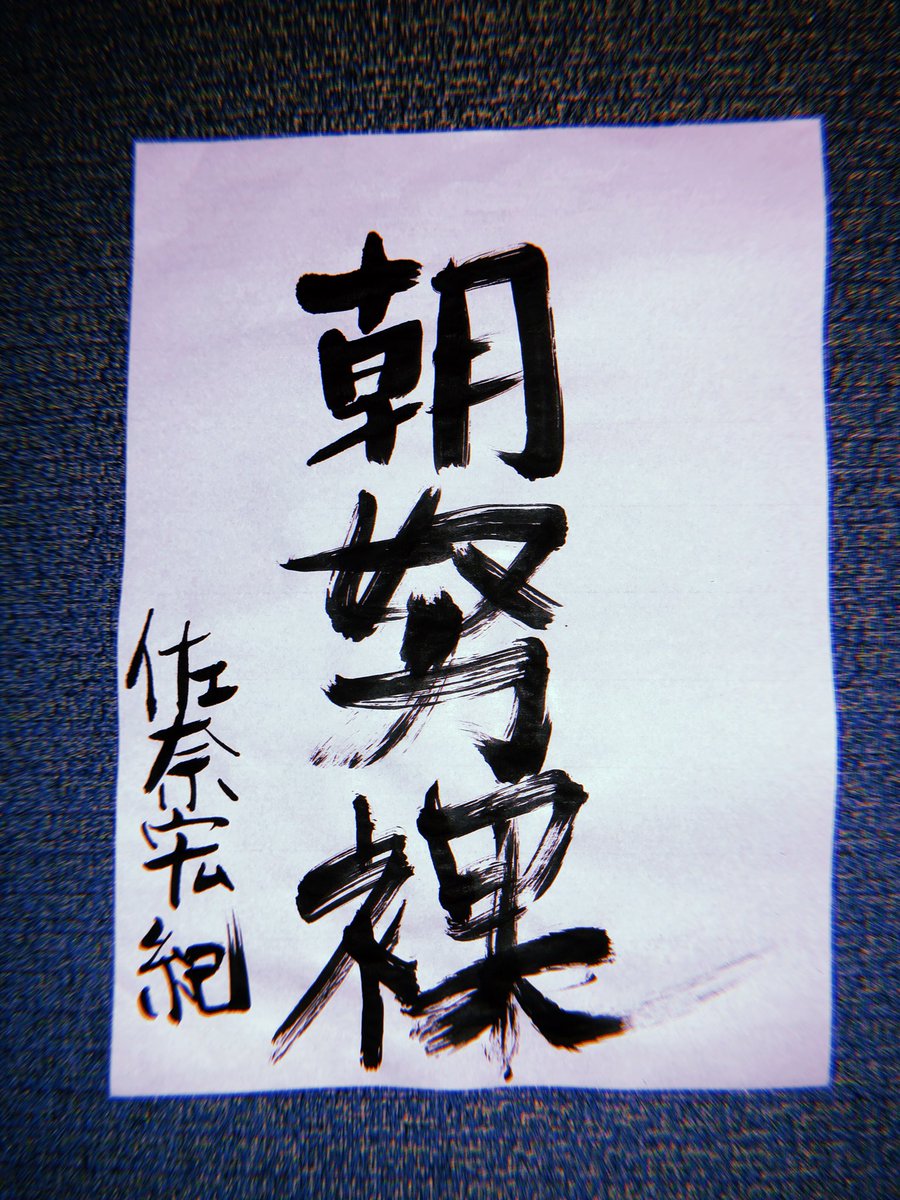 朝努裸
佐奈宏紀